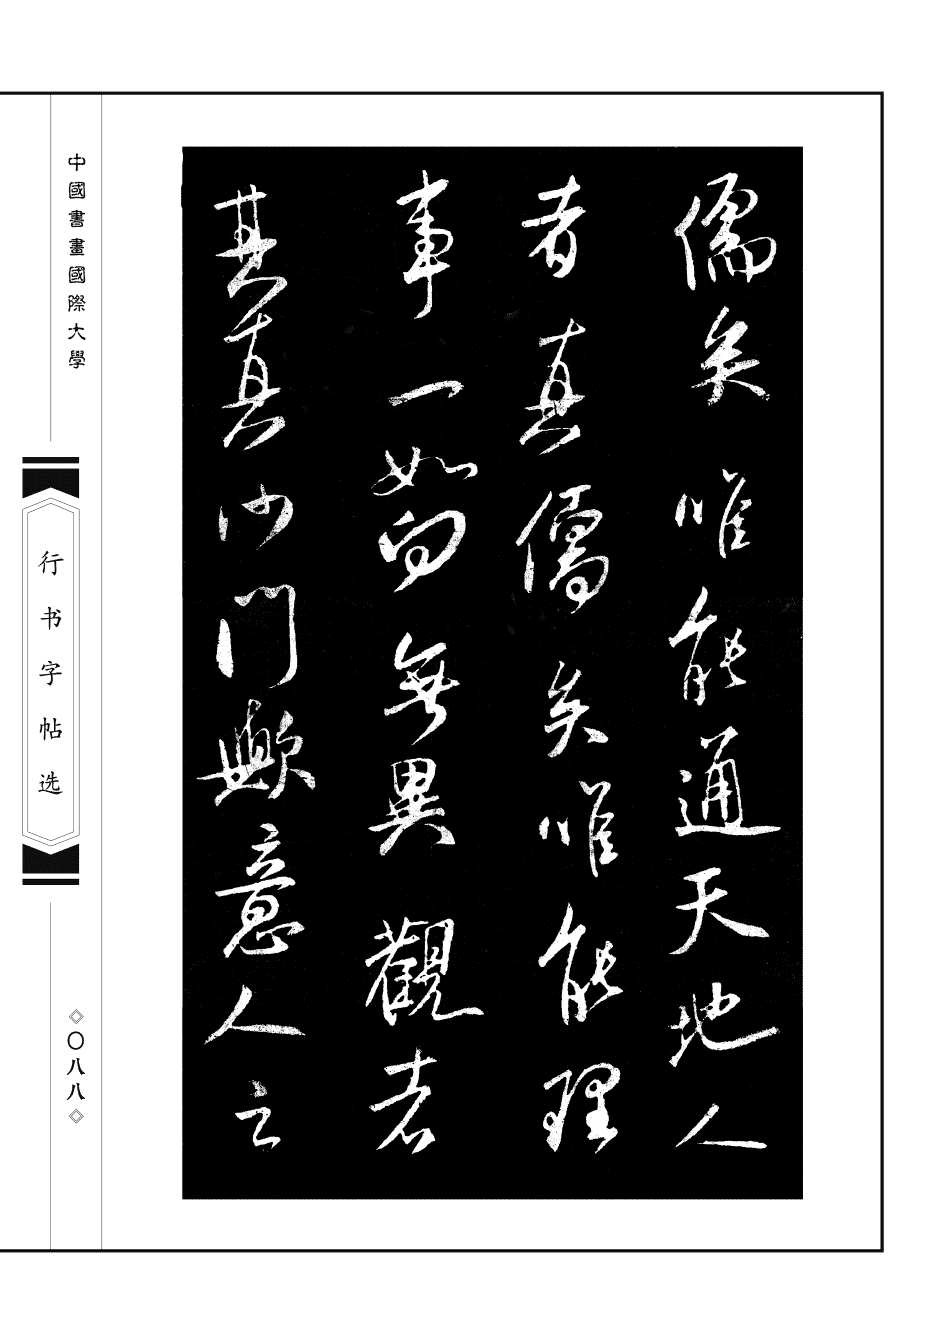 儒矣唯能通天地人
者真儒矣唯能理
事一如向無異觀者
其真沙門歟意人之
中國書畫國際大學
行书字帖选
〇八八